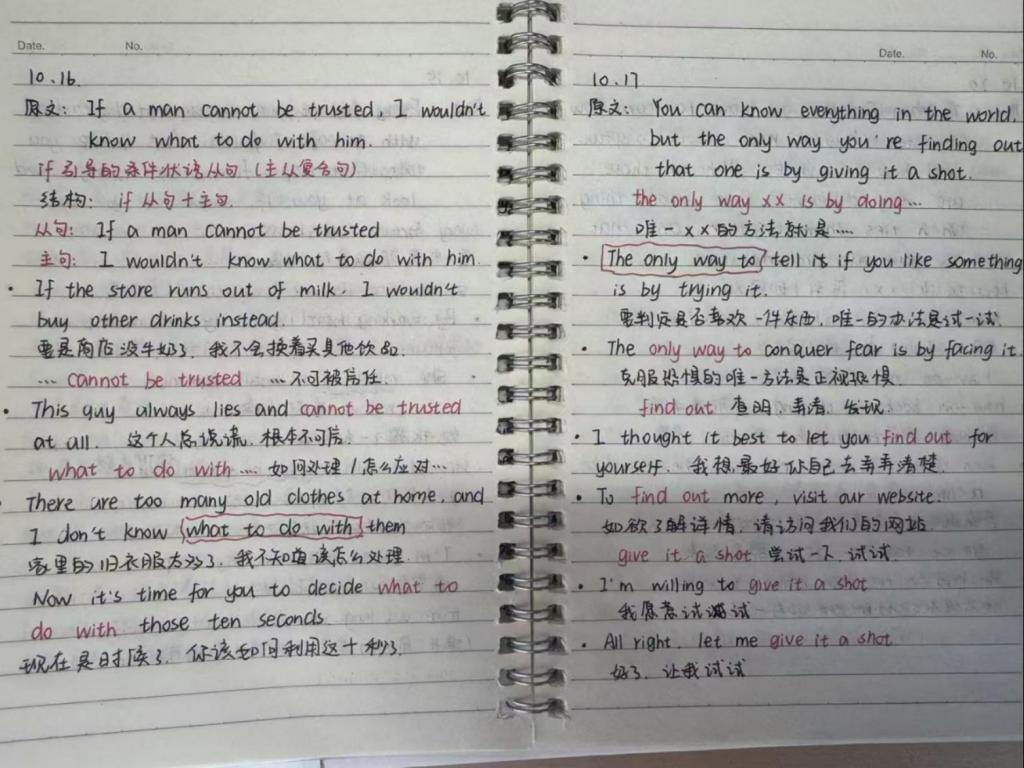 Date. No.
10.16.
原文: If a man cannot be trusted, I wouldn't
know what to do with him.
if引导的条件状语从句(主从复合句)
结构: if从句+主句.
从句: If a man cannot be trusted
主句: I wouldn't know what to do with him.
· If the store runs out of milk. I wouldn't
buy other drinks instead.
要是商店没牛奶了, 我不会换着买其他饮品.
… cannot be trusted …不可被信任.
· This guy always lies and cannot be trusted
at all. 这个人总说谎, 根本不可信.
what to do with … 如何处理/怎么应对…
· There are too many old clothes at home, and
I don't know what to do with them
家里的旧衣服太多了, 我不知道该怎么处理.
Now it's time for you to decide what to
do with those ten seconds.
现在是时候了, 你该如何利用这十秒了.
Date. No.
10.17
原文: You can know everything in the world,
but the only way you're finding out
that one is by giving it a shot.
the only way xx is by doing…
唯一xx的方法就是…
· The only way to tell it if you like something
is by trying it.
要判定是否喜欢一件东西, 唯一的办法是试一试.
· The only way to conquer fear is by facing it.
克服恐惧的唯一方法是正视恐惧.
find out 查明, 弄清, 发现.
· I thought it best to let you find out for
yourself. 我想最好你自己去弄弄清楚.
· To find out more, visit our website.
如欲了解详情, 请访问我们的网站.
give it a shot 尝试一下, 试试
· I'm willing to give it a shot
我愿意试试
· All right, let me give it a shot
好了, 让我试试